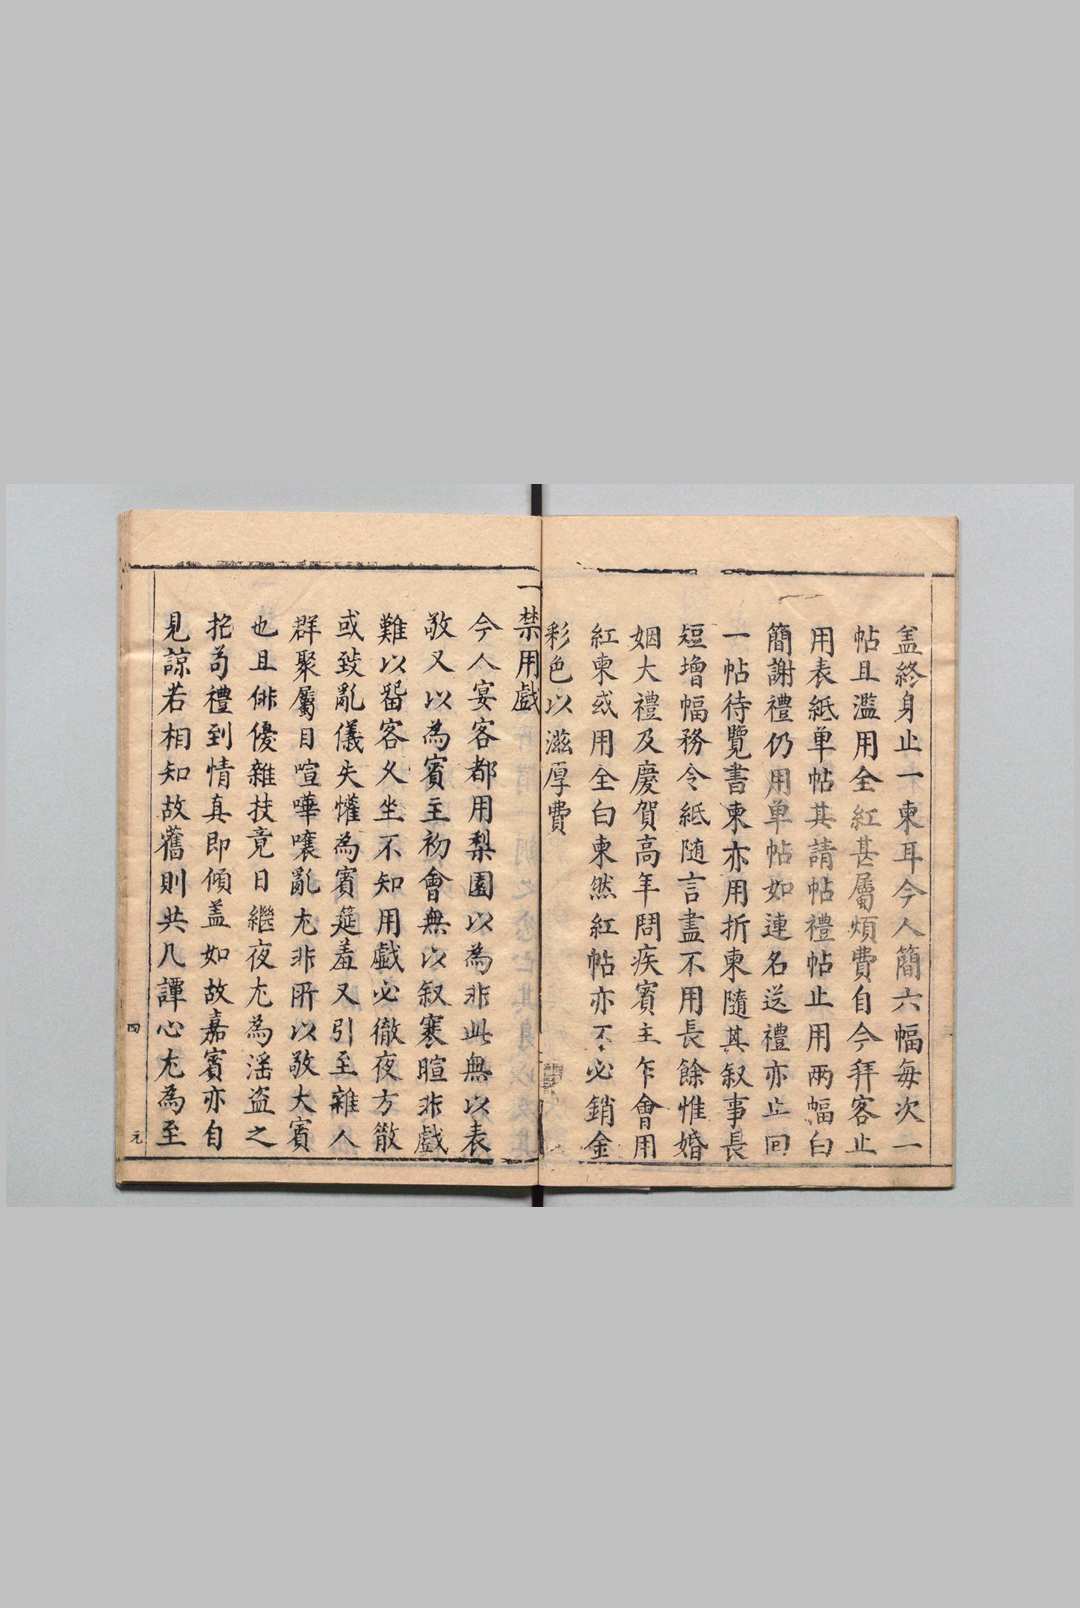 盖終身止一柬耳今人簡六幅每次一
帖且濫用全紅甚屬煩費自今拜客止
用表紙单帖其請帖禮帖止用两幅白
簡謝禮仍用单帖如連名送禮亦止回
一帖待覽書柬亦用折柬隨其叙事長
短增幅務令紙随言盡不用長餘惟婚
姻大禮及慶賀高年問疾賓主乍會用
紅柬或用全白柬然紅帖亦不必銷金
彩色以滋厚費
一禁用戲
今人宴客都用梨園以為非此無以表
敬又以為賓主初會無以叙寒暄非戲
難以留客久坐不知用戲必徹夜方散
或致亂儀失懽為賓筵羞又引至雜人
群聚屬目喧嘩嚷亂尤非所以敬大賓
也且俳優雜技竟日繼夜尤為滛盗之
招苟禮到情真即傾盖如故嘉賓亦自
見諒若相知故舊則共几譚心尤為至
四
元